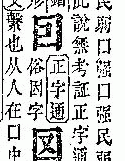 民口强口强民
此說考証正字通
囙
正字通
俗因字
文繫也从人在口中